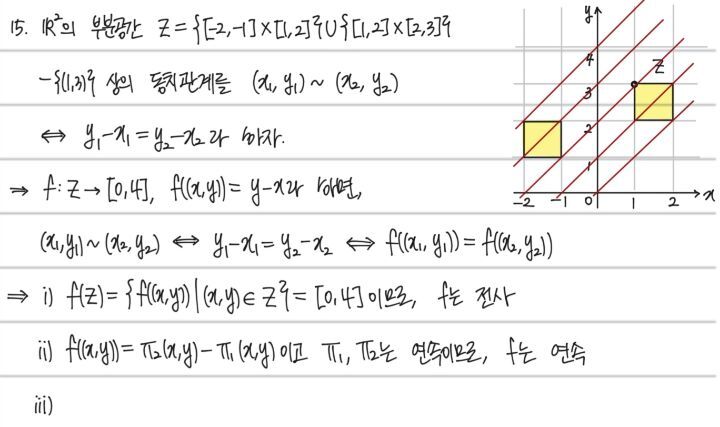 15. ℝ²의 부분공간 Z = {[-2,-1]×[1,2]}∪{[1,2]×[2,3]}
-{(1,3)} 상의 동치관계를 (x₁, y₁) ~ (x₂, y₂)
⇔ y₁-x₁ = y₂-x₂라 하자.
⇒ f: Z → [0,4], f((x,y)) = y-x라 하면,
(x₁,y₁) ~ (x₂,y₂) ⇔ y₁-x₁ = y₂-x₂ ⇔ f((x₁,y₁)) = f((x₂,y₂))
⇒ i) f(Z) = {f((x,y)) | (x,y) ∈ Z} = [0,4] 이므로, f는 전사
ii) f((x,y)) = π₂(x,y) - π₁(x,y) 이고 π₁, π₂는 연속이므로, f는 연속
iii)
y
4
Z
3
2
1
-2 -1 0 1 2 x